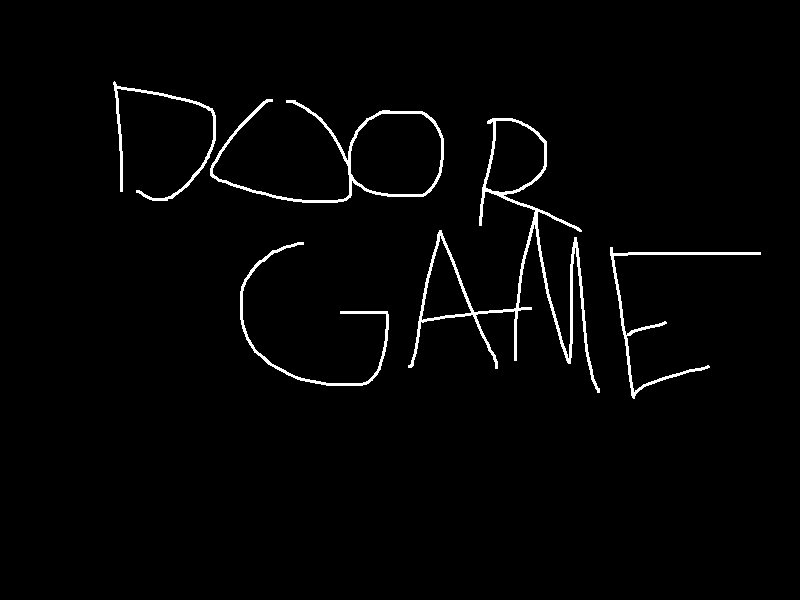 DOOR
GAME